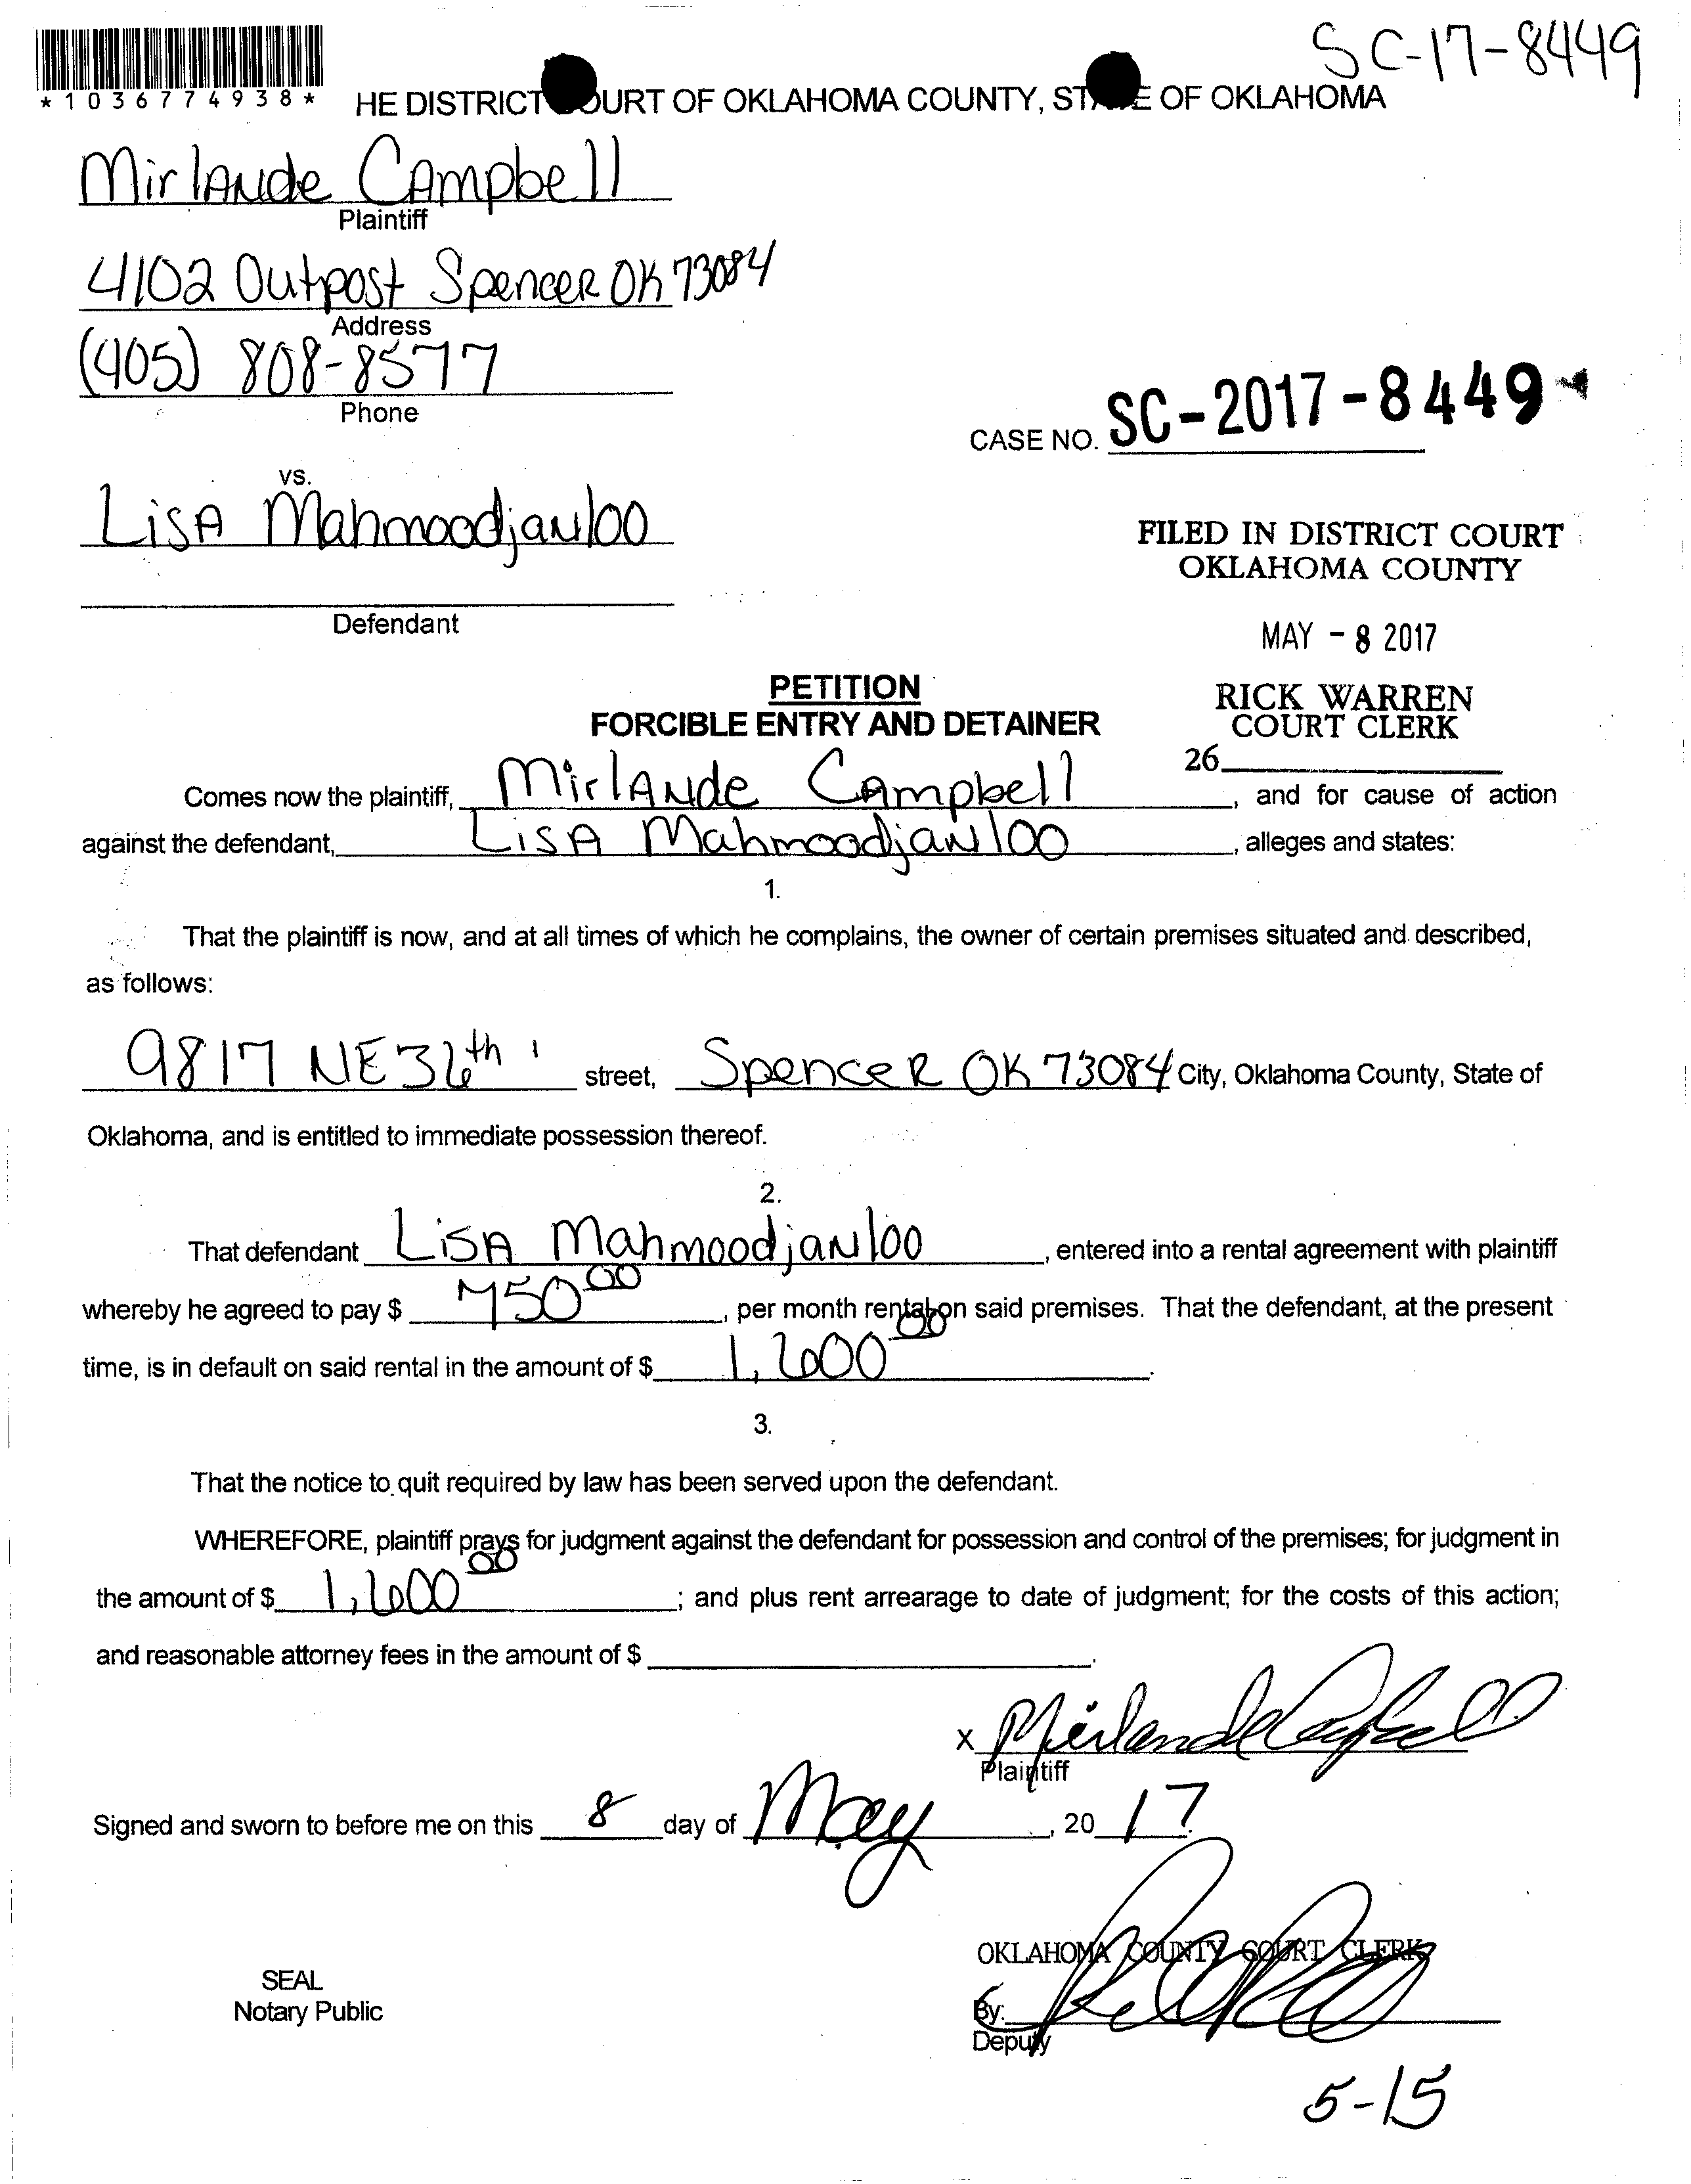 SC-17-8449
*1036774938*
HE DISTRICT OURT OF OKLAHOMA COUNTY, STATE OF OKLAHOMA
MirlANde CAmpbell
Plaintiff
4102 Outpost SpenceR OK 73084
Address
(405) 808-8577
Phone
CASE NO. SC-2017-8449
vs.
LisA MahmoodjaNloo
FILED IN DISTRICT COURT
OKLAHOMA COUNTY
Defendant
MAY - 8 2017
PETITION
RICK WARREN
FORCIBLE ENTRY AND DETAINER
COURT CLERK
26
Comes now the plaintiff, MirlANde CAmpbell, and for cause of action
against the defendant, LisA MahmoodjaNloo, alleges and states:
1.
That the plaintiff is now, and at all times of which he complains, the owner of certain premises situated and described,
as follows:
9817 NE 36th street, SpenceR OK 73084 City, Oklahoma County, State of
Oklahoma, and is entitled to immediate possession thereof.
2.
That defendant LiSA MahmoodjaNloo, entered into a rental agreement with plaintiff
whereby he agreed to pay $ 750 00, per month rental on said premises. That the defendant, at the present
time, is in default on said rental in the amount of $ 1,600 00.
3.
That the notice to quit required by law has been served upon the defendant.
WHEREFORE, plaintiff prays for judgment against the defendant for possession and control of the premises; for judgment in
the amount of $ 1,600 00; and plus rent arrearage to date of judgment; for the costs of this action;
and reasonable attorney fees in the amount of $
x Mirlande Campbell
Plaintiff
Signed and sworn to before me on this 8 day of May, 20 17.
OKLAHOMA COUNTY COURT CLERK
SEAL
Notary Public
By:
Deputy
5-15